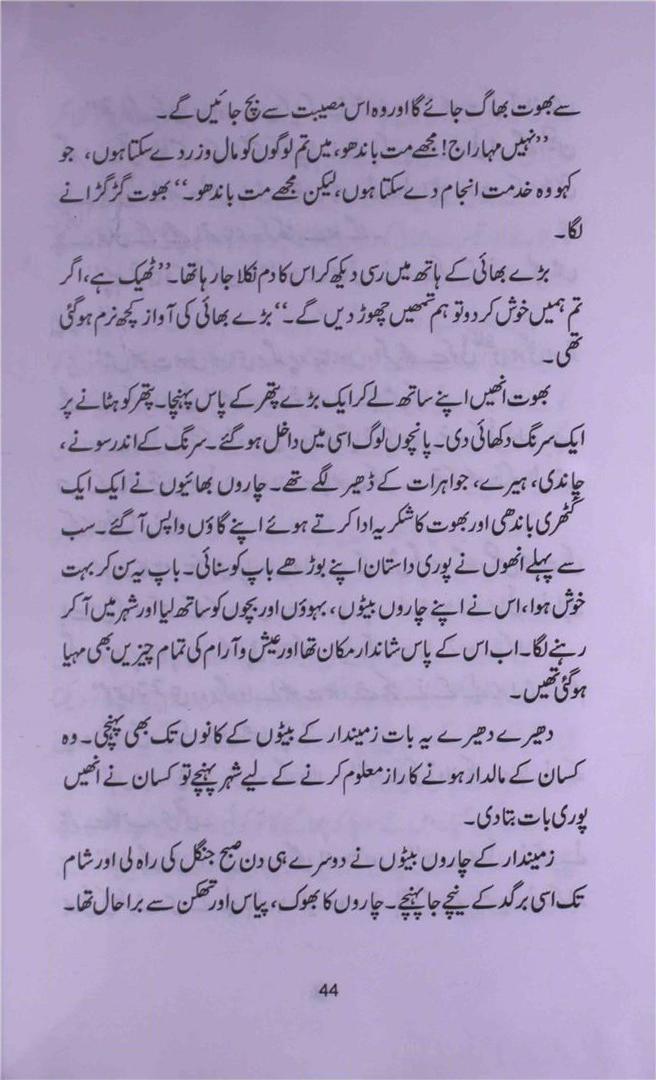 سے بھوت بھاگ جائے گا اور وہ اس مصیبت سے بچ جائیں گے۔
”نہیں مہاراج! مجھے مت باندھو، میں تم لوگوں کو مال و زر دے سکتا ہوں، جو
کہو وہ خدمت انجام دے سکتا ہوں، لیکن مجھے مت باندھو۔“ بھوت گڑگڑانے
لگا۔
بڑے بھائی کے ہاتھ میں رسی دیکھ کر اس کا دم نکلا جا رہا تھا۔ ”ٹھیک ہے، اگر
تم ہمیں خوش کر دو تو ہم تمھیں چھوڑ دیں گے۔“ بڑے بھائی کی آواز کچھ نرم ہو گئی
تھی۔
بھوت انھیں اپنے ساتھ لے کر ایک بڑے پتھر کے پاس پہنچا۔ پتھر کو ہٹانے پر
ایک سرنگ دکھائی دی۔ پانچوں لوگ اسی میں داخل ہو گئے۔ سرنگ کے اندر سونے،
چاندی، ہیرے، جواہرات کے ڈھیر لگے تھے۔ چاروں بھائیوں نے ایک ایک
گٹھری باندھی اور بھوت کا شکریہ ادا کرتے ہوئے اپنے گاؤں واپس آ گئے۔ سب
سے پہلے انھوں نے پوری داستان اپنے بوڑھے باپ کو سنائی۔ باپ یہ سن کر بہت
خوش ہوا، اس نے اپنے چاروں بیٹوں، بہوؤں اور بچوں کو ساتھ لیا اور شہر میں آ کر
رہنے لگا۔ اب اس کے پاس شاندار مکان تھا اور عیش و آرام کی تمام چیزیں بھی مہیا
ہو گئی تھیں۔
دھیرے دھیرے یہ بات زمیندار کے بیٹوں کے کانوں تک بھی پہنچی۔ وہ
کسان کے مالدار ہونے کا راز معلوم کرنے کے لیے شہر پہنچے تو کسان نے انھیں
پوری بات بتا دی۔
زمیندار کے چاروں بیٹوں نے دوسرے ہی دن صبح جنگل کی راہ لی اور شام
تک اسی برگد کے نیچے جا پہنچے۔ چاروں کا بھوک، پیاس اور تھکن سے برا حال تھا۔
44